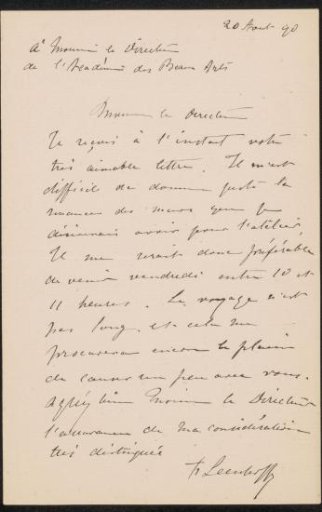 20 Aout 90
A Monsieur le Directeur
de l'Académie des Beaux Arts
Monsieur le Directeur
Je reçois à l'instant votre
très aimable lettre. Il m'est
difficile de donner juste la
nuance des murs que je
désirerais avoir pour l'atelier.
Il me serait donc préférable
de venir vendredi entre 10 et
11 heures. Le voyage n'est
pas long, et cela me
procurera encore le plaisir
de causer un peu avec vous.
Agréez bien Monsieur le Directeur
l'assurance de ma considération
très distinguée
Leenhoff